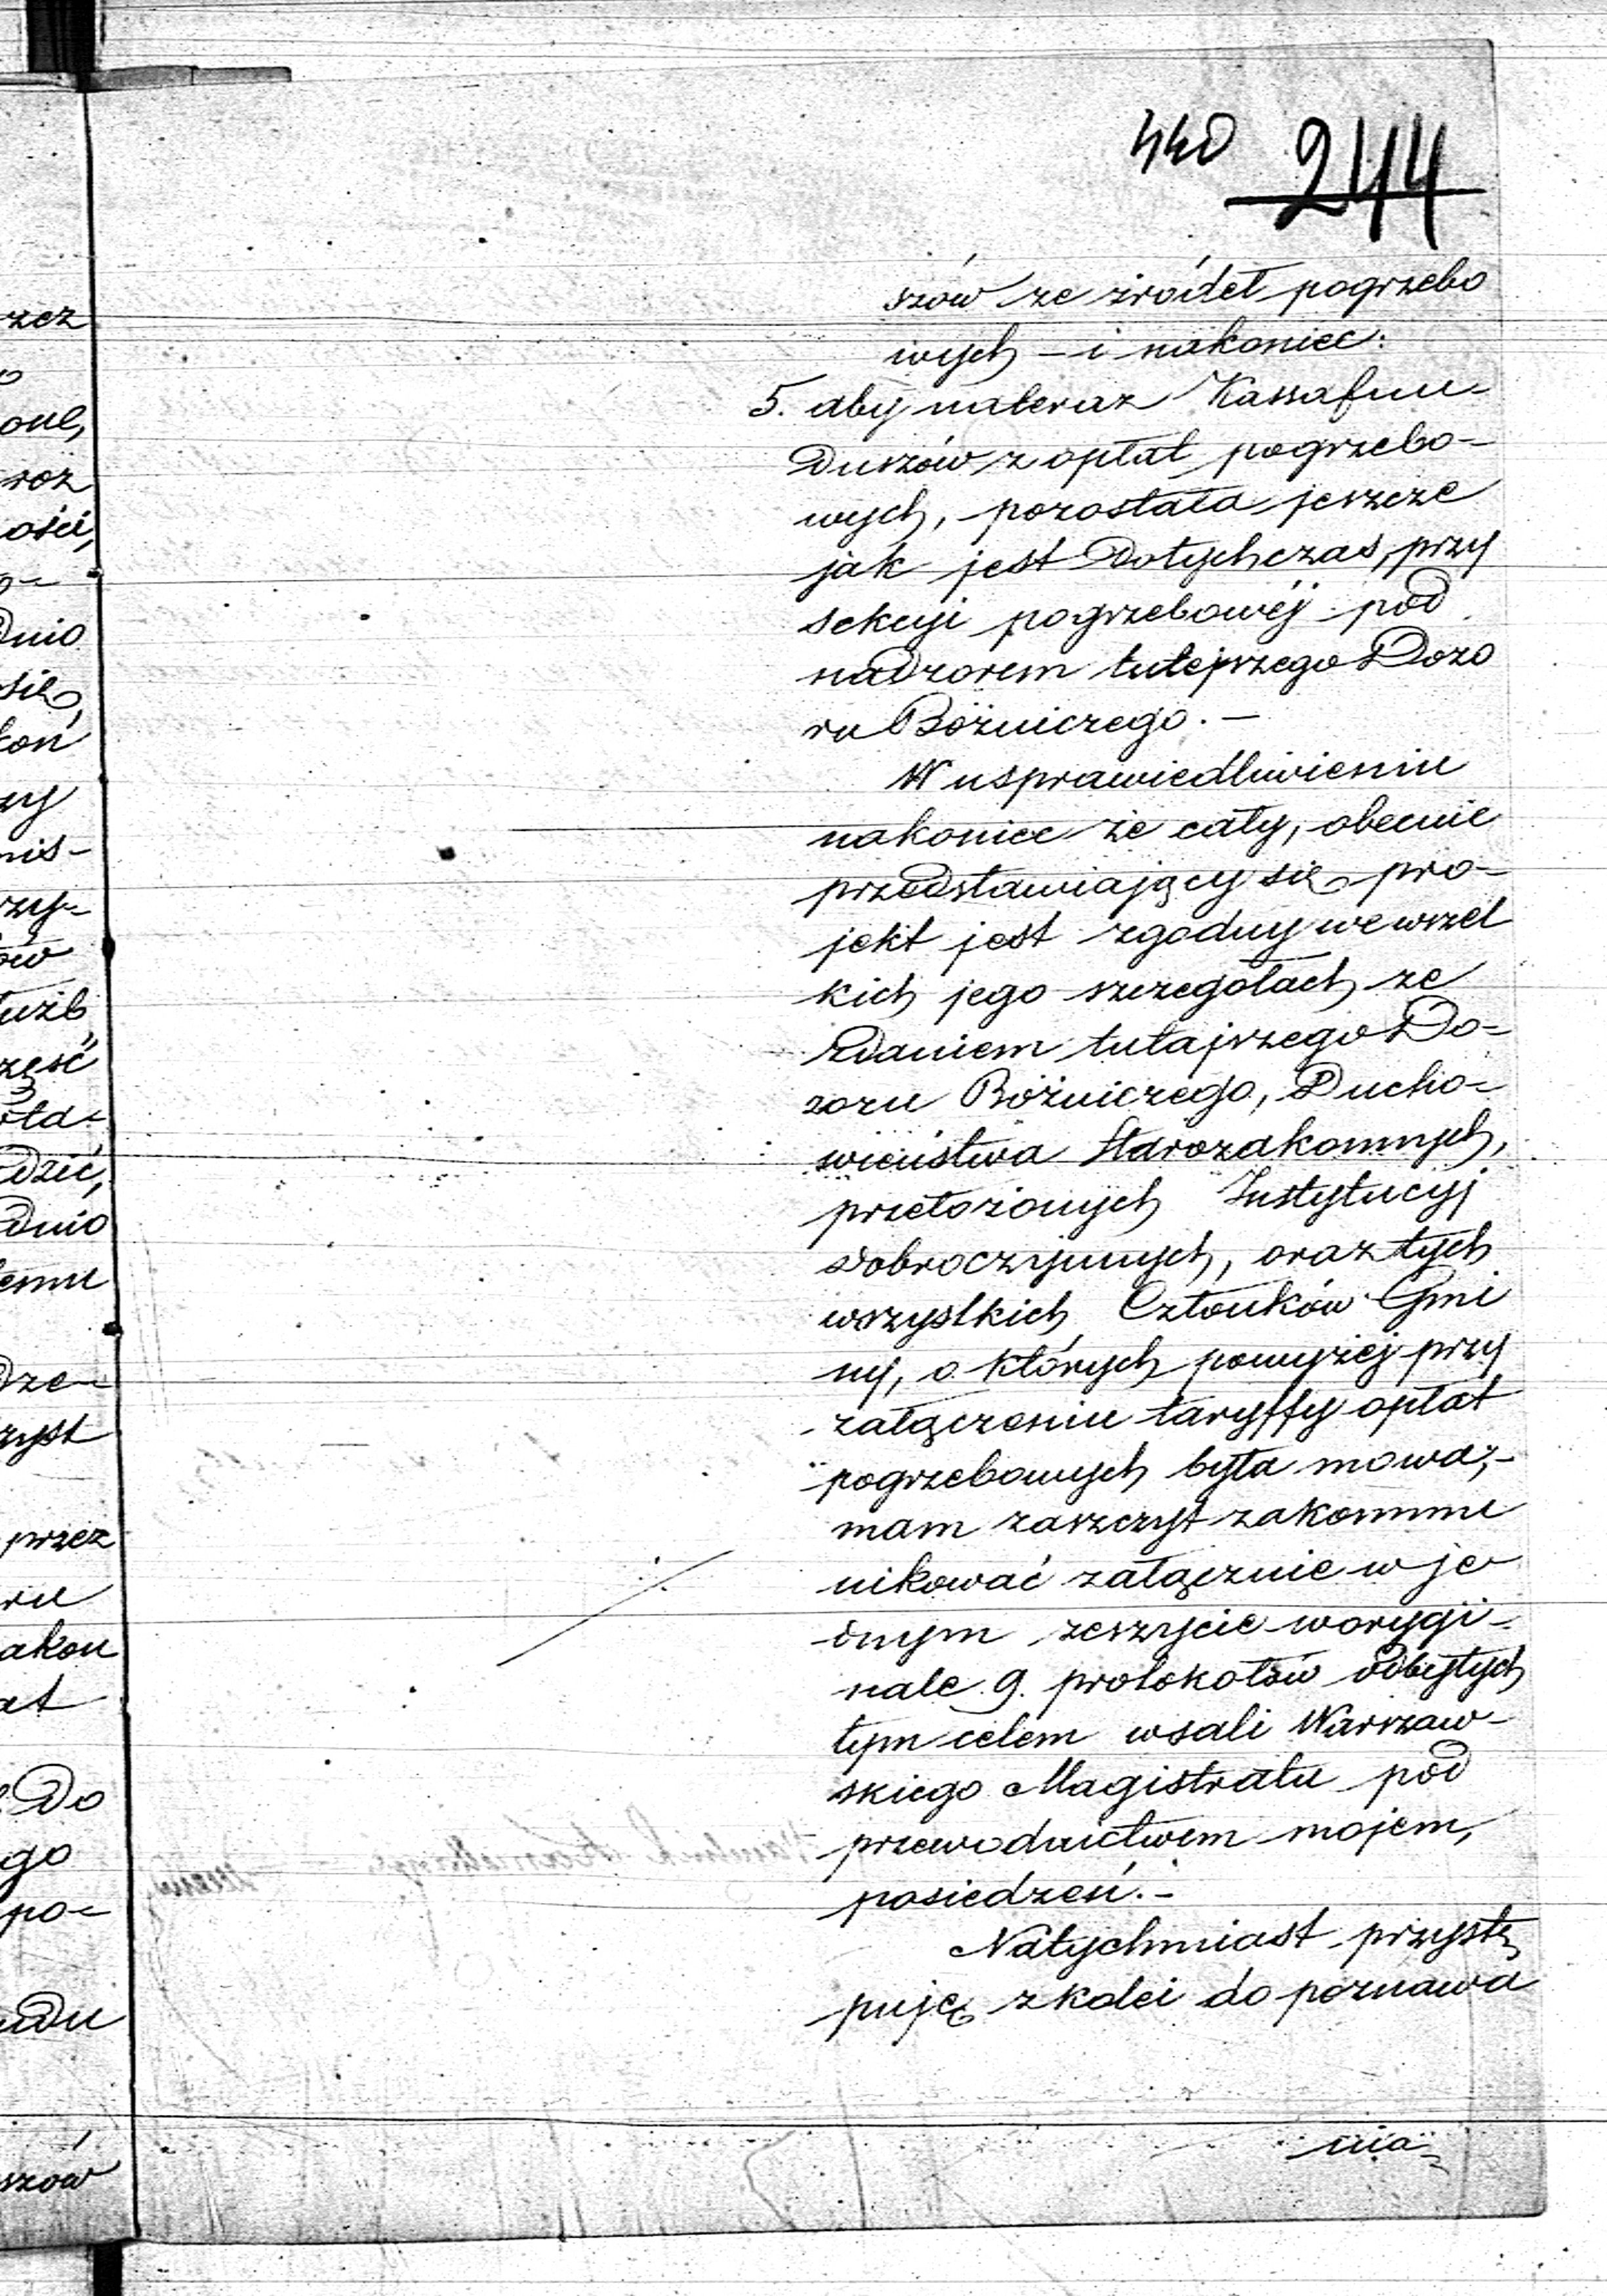 440 244
szów ze źródeł pogrzebo
wych – i nakoniec:
5. aby nateraz Kassa fun-
duszów z opłat pogrzebo-
wych, pozostała jeszcze
jak jest dotychczas, przy
sekcyi pogrzebowéj pod
nadzorem tutejszego Dozo
ru Bóżniczego. –
W usprawiedliwieniu
nakoniec że cały, obecnie
przedstawiający się pro-
jekt jest zgodny we wszel
kich jego szczegółach ze
zdaniem tutajszego Do-
zoru Bóżniczego, Ducho-
wieństwa Starozakonnych,
przełożonych Instytucyj
dobroczynnych, oraz tych
wszystkich Członków Gmi
ny, o których powyżej przy
załączeniu taryffy opłat
pogrzebowych była mowa; –
mam zaszczyt zakommu
nikować załącznie w je
dnym zeszycie w orygi-
nale 9. protokołów odbytych
tym celem w sali Warszaw-
skiego Magistratu pod
przewodnictwem mojem,
posiedzeń. –
Natychmiast przystę
puję z kolei do poznawa
nia
zez
one,
roz
ości,
dnio
się,
koń
zy
mis-
rzy-
ów
użb
zęść
ota-
dzić,
dnio
emu
dze-
zyst
przez
ru
akon
at
Do
go
po-
adu
szów